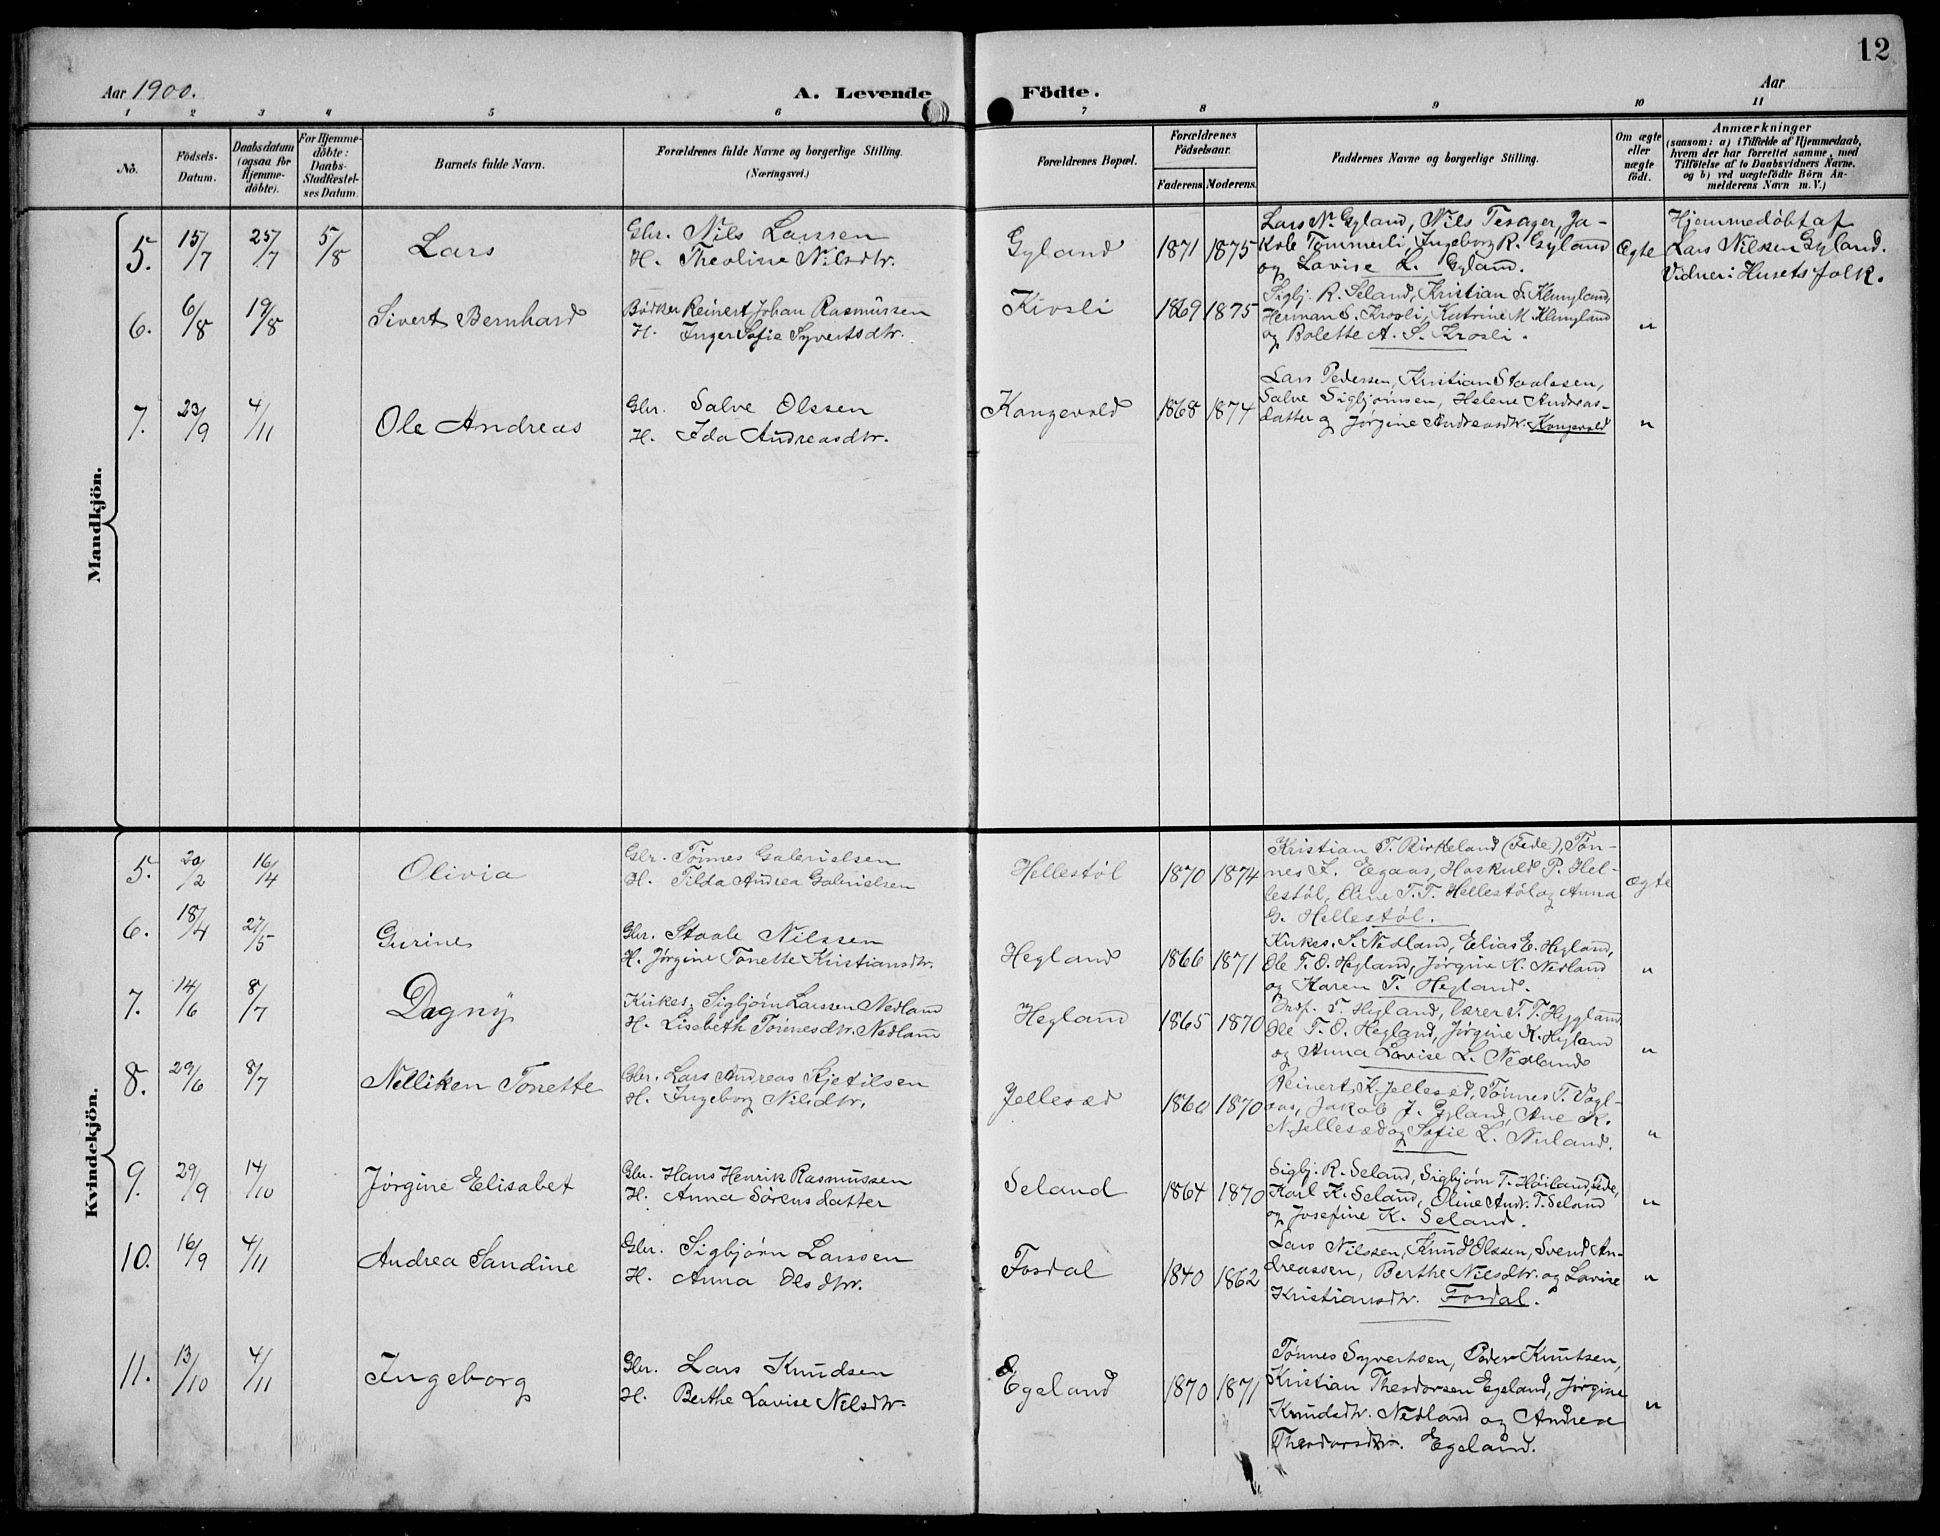 12
Aar 1900.
A. Levende Födte.
Aar
1 2 3 4 5 6 7 8 9 10 11
No.
Födsels-
Datum.
Daabsdatum
(ogsaa for
Hjemme-
döbte).
For Hjemme-
döbte:
Daabs-
Stadfæstel-
ses Datum.
Barnets fulde Navn.
Forældrenes fulde Navne og borgerlige Stilling.
(Næringsvei.)
Forældrenes Bopæl.
Forældrenes
Födselsaar.
Faderens Moderens.
Faddernes Navne og borgerlige Stilling.
Om ægte
eller
uægte
födt.
Anmærkninger
(saasom: a) i Tilfælde af Hjemmedaab,
hvem der har forrettet samme, med
Tilföielse af to Daabsvidners Navne,
og b) ved uægtefödte Börn An-
melderens Navn m. V.)
Mandkjön.
5. 15/7 25/7 5/8 Lars
Gbr. Nils Larsen
H. Theoline Nilsdtr.
Gyland 1871 1875
Lars N. Gyland, Nils Tesager, Ja-
kob Tømmerli, Ingeborg R. Gyland
og Lovise L. Gyland.
Ægte
Hjemmedøbt af
Lars Nilsen Gyland.
Vidner: Husets folk.
6. 6/8 19/8 Sivert Bernhard
Bødker Reinert Johan Rasmussen
H. Inger Sofie Syvertsdtr.
Krosli 1869 1875
Sigbj. R. Seland, Kristian S. Klungland,
Herman S. Krosli, Katrine M. Klungland
og Bolette A. S. Krosli.
"
7. 23/9 4/11 Ole Andreas
Gbr. Salve Olssen
H. Ida Andreasdtr.
Kongevold 1868 1874
Lars Pedersen, Kristian Staalesen,
Salve Sigbjørnsen, Helene Andreas-
datter og Jørgine Andreasdtr. Kongevold
"
Kvindekjön.
5. 20/2 16/4 Olivia
Gbr. Tønnes Gabrielsen
H. Tilda Andrea Gabrielsen
Hellestøl 1870 1874
Kristian T. Birkeland (Fede), Tøn-
nes F. Egaas, Haskuld P. Hel-
lestøl, Oline T. T. Hellestøl og Anna
G. Hellestøl.
Ægte
6. 18/4 27/5 Gurine
Gbr. Staale Nilssen
H. Jørgine Tonette Kristiansdtr.
Hegland 1866 1871
Kirkes. S. Nedland, Elias E. Hegland,
Ole T. O. Hegland, Jørgine K. Nedland
og Karen T. Hegland.
"
7. 14/6 8/7 Dagny
Kirkes. Sigbjørn Larssen Nedland
H. Lisebeth Tønnesdtr. Nedland
Hegland 1865 1870
T. Hegland, Lærer T. T. Hegland
Ole T. O. Hegland, Jørgine K. Hegland
og Anna Lovise L. Nedland
"
8. 29/6 8/7 Nelliken Tonette
Gbr. Lars Andreas Kjetilsen
H. Ingeborg Nilsdtr.
Jellesæd 1860 1870
Reinert K. Jellesæd, Tønnes T. Vogl-
aas, Jakob J. Gyland, Ane K.
N. Jellesæd og Sofie L. Nuland.
"
9. 29/9 14/10 Jørgine Elisabet
Gbr. Hans Henrik Rasmussen
H. Anna Sørensdatter
Seland 1864 1870
Sigbj. R. Seland, Sigbjørn T. Høiland, Fede,
Karl K. Seland, Oline Andr. T. Seland
og Josefine K. Seland.
"
10. 16/9 4/11 Andrea Sandine
Gbr. Sigbjørn Larssen
H. Anna Olsdtr.
Fosdal 1840 1862
Lars Nilssen, Knud Olssen, Svend An-
dreassen, Berthe Nilsdtr. og Lovise
Kristiansdtr. Fosdal.
"
11. 13/10 4/11 Ingeborg
Gbr. Lars Knudsen
H. Berthe Lovise Nilsdtr.
Egeland 1870 1871
Tønnes Syvertsen, Peder Knutsen,
Kristian Theodorsen Egeland, Jørgine
Knudsdtr. Nedland og Andrea
Theodorsdtr. Egeland.
"